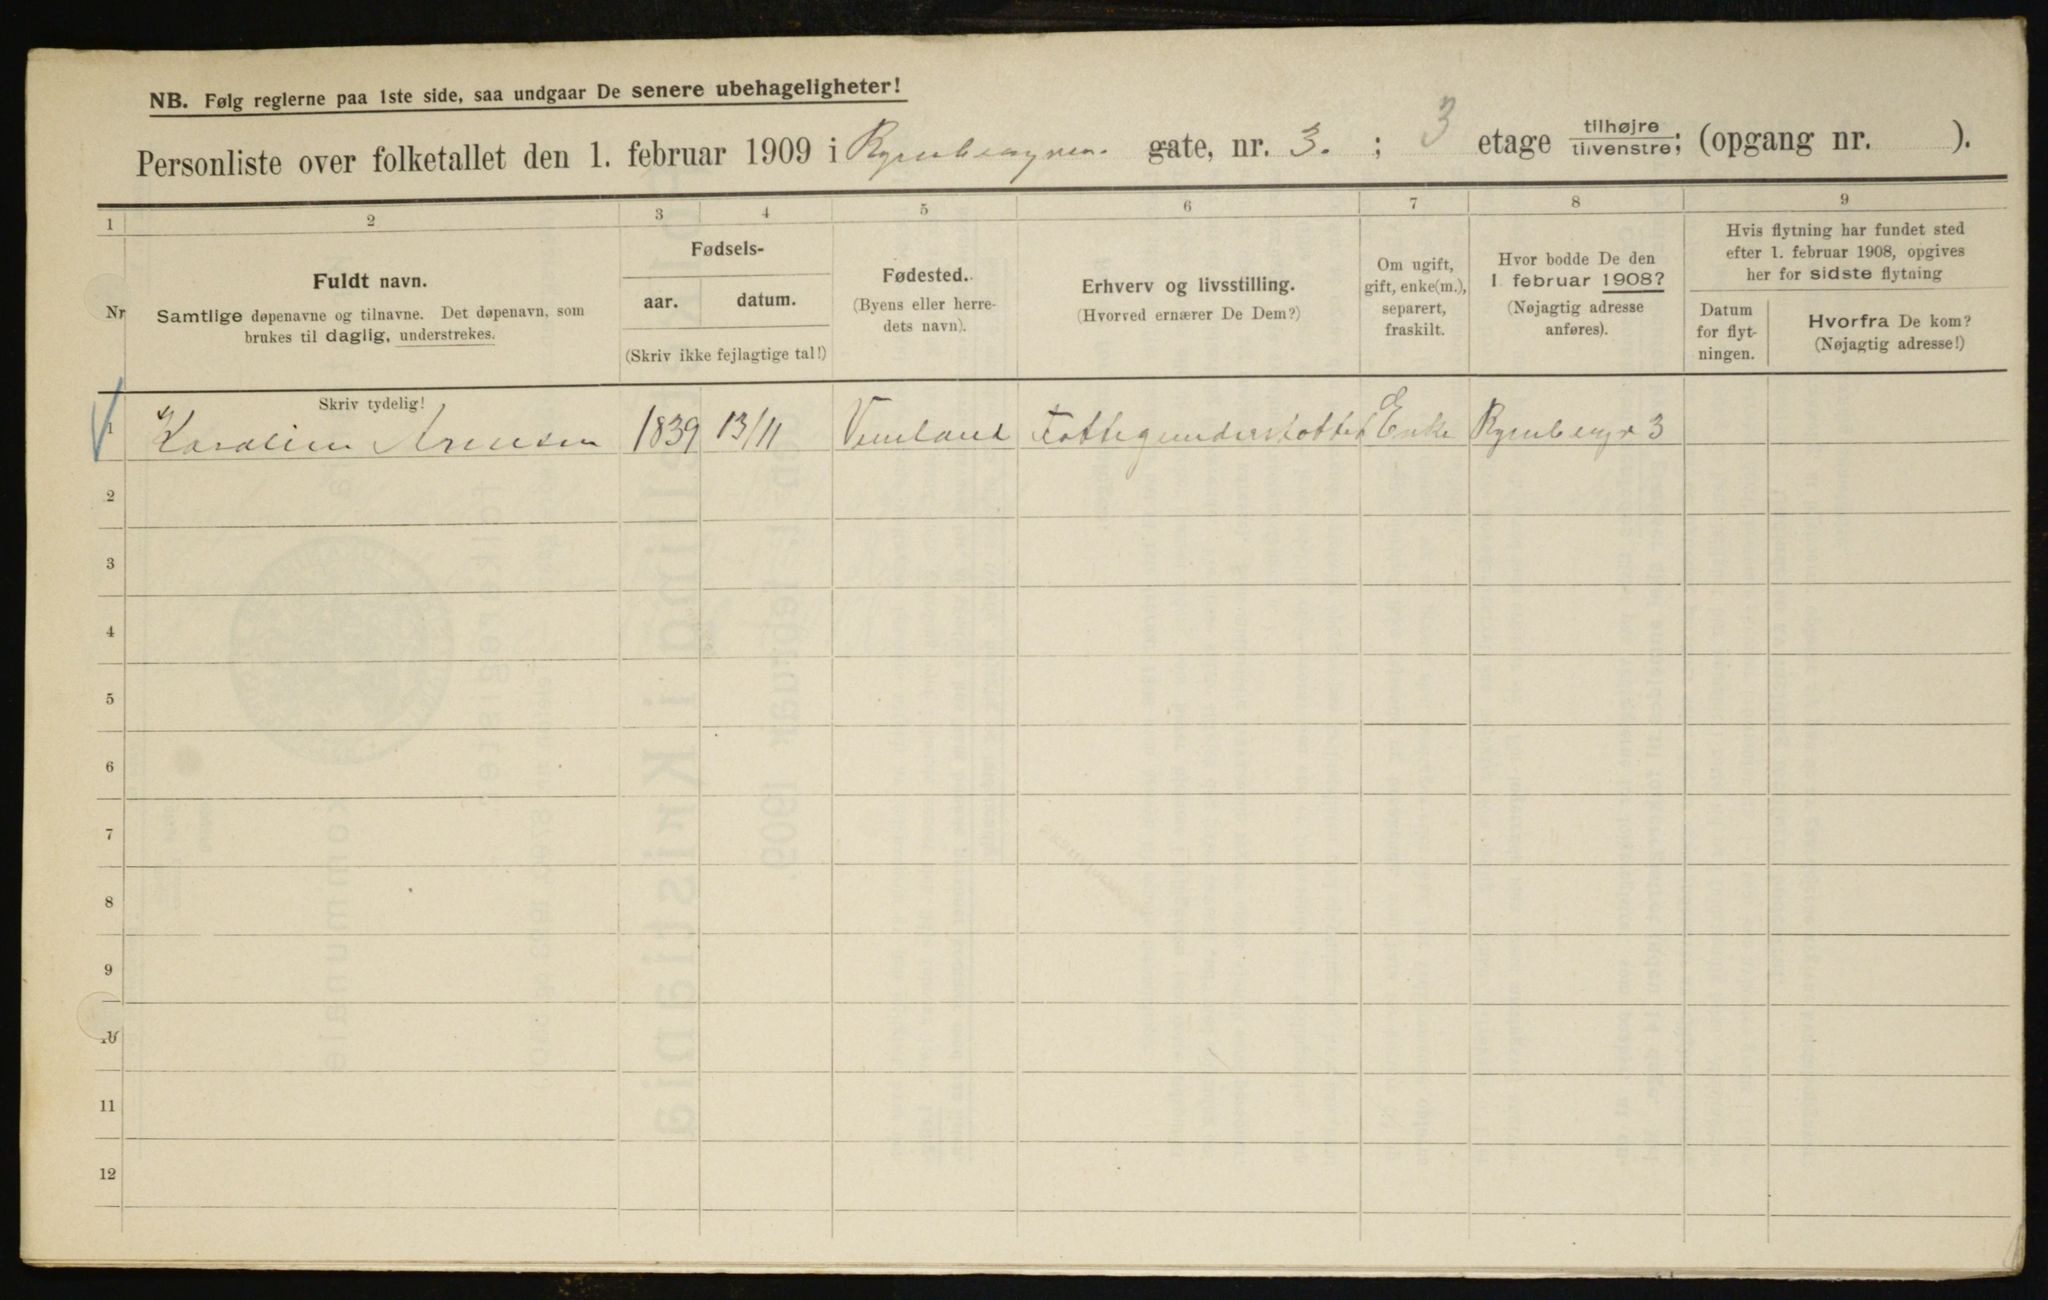 NB. Følg reglerne paa 1ste side, saa undgaar De senere ubehageligheter!
Personliste over folketallet den 1. februar 1909 i gate, nr. 3. ; 3 etage tilhøjre tilvenstre; (opgang nr. ).
1 2 3 4 5 6 7 8 9
Nr
Fuldt navn.
Samtlige døpenavne og tilnavne. Det døpenavn, som
brukes til daglig, understrekes.
Fødsels-
aar. datum.
(Skriv ikke fejlagtige tal!)
Fødested.
(Byens eller herre-
dets navn).
Erhverv og livsstilling.
(Hvorved ernærer De Dem?)
Om ugift,
gift, enke(m.),
separert,
fraskilt.
Hvor bodde De den
1 februar 1908?
(Nøjagtig adresse
anføres).
Hvis flytning har fundet sted
efter 1. februar 1908, opgives
her for sidste flytning
Datum
for flyt-
ningen.
Hvorfra De kom?
(Nøjagtig adresse!)
Skriv tydelig!
1 1839 13/11 Fattigunderstøttet Enke 3
2
3
4
5
6
7
8
9
10
11
12